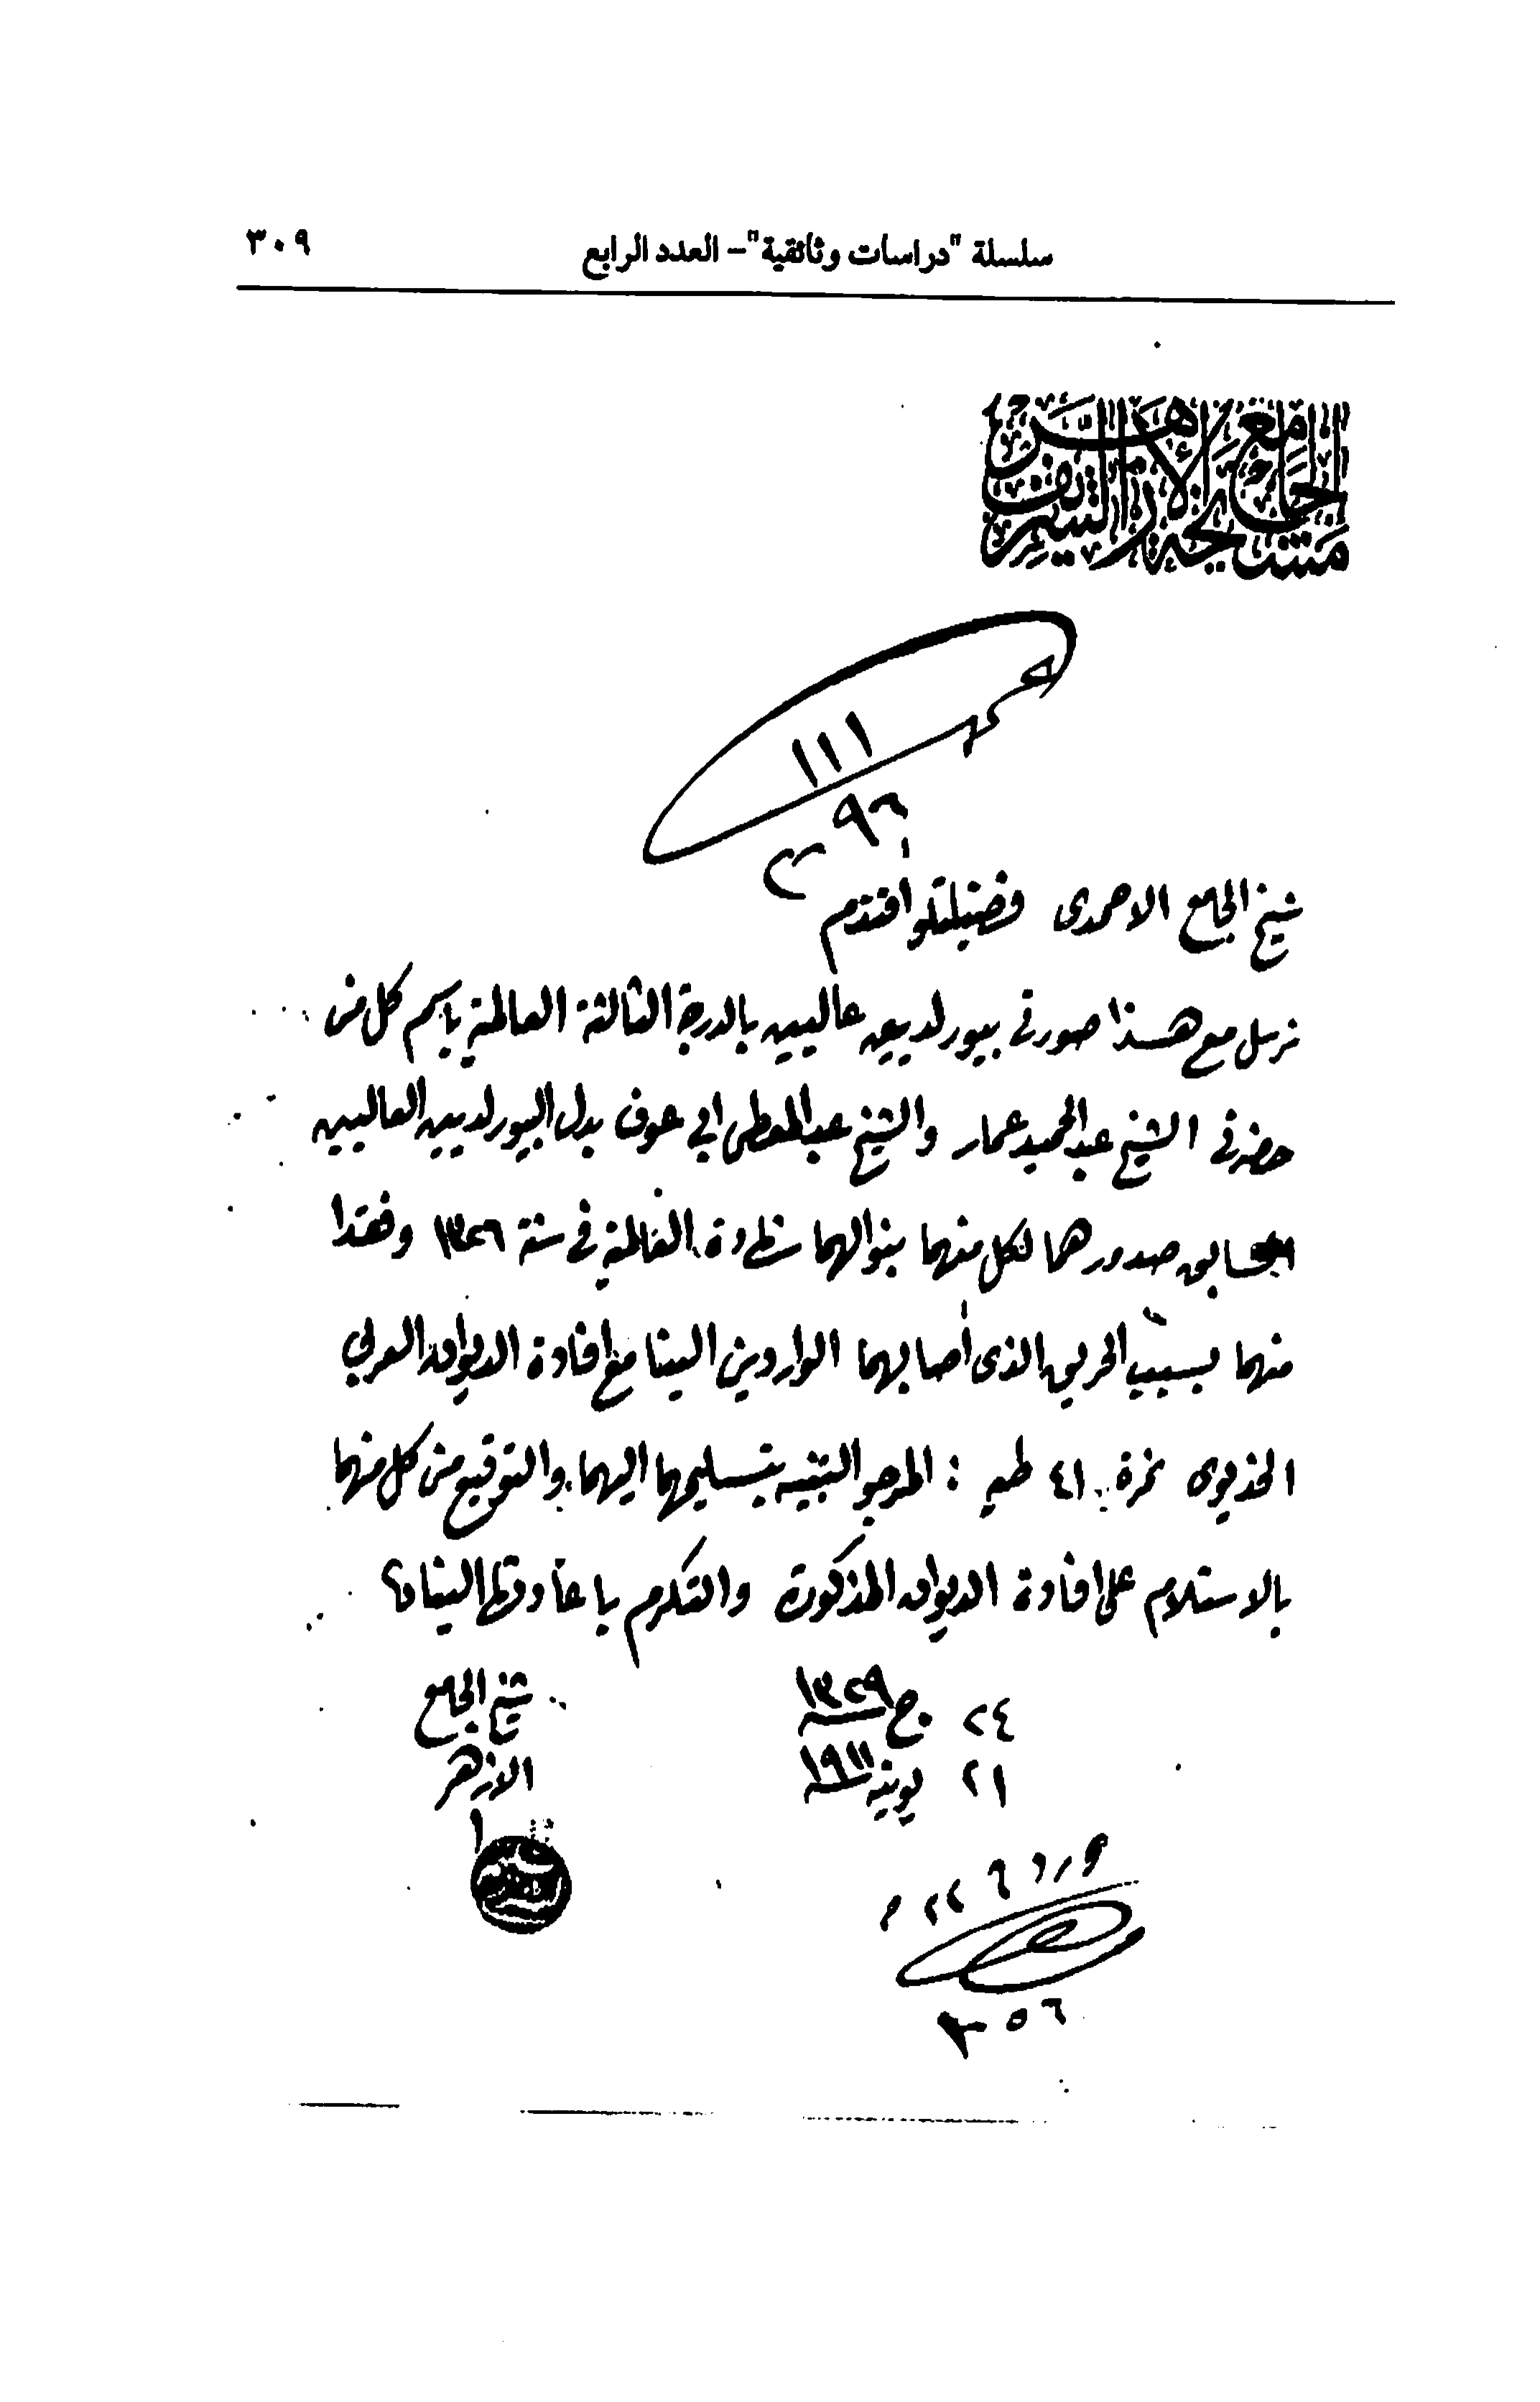 سلسلة "دراسات وثائقية"– العدد الرابع ٣٠٩
مشيخة الجامع الأزهر الشريف
١١١
٩٦
شيخ الجامع الاحمدى فضيلتلو افندم
نرسل مع هذا صورتى بيورلديين عاليين بالدرجة الثالثة العالمية باسم كل من
حضرتى الشيخ عبد الحميد عمار والشيخ عبد المعطى ابى عوف بدل البيورلديين العاليين
السابق صدورهما لكل منهما بنوالهما شهادة العالمية فى سنة ١٣٢٦ وفقدا
منهما بسبب الحريق الذى أصابهما الواردين الينا مع افادة الديوان العربى
الخديوى نمرة ٤١ طيه : المرجو التنبيه بتسليمهما اليهما والتوقيع من كل منهما
بالاستلام على افادة الديوان المذكورة والتكرم باعادتها الينا
٢٤ ج ١٣٢٩
٢١ يونيه ١٩١١
شيخ الجامع
الازهر
٣٥٦